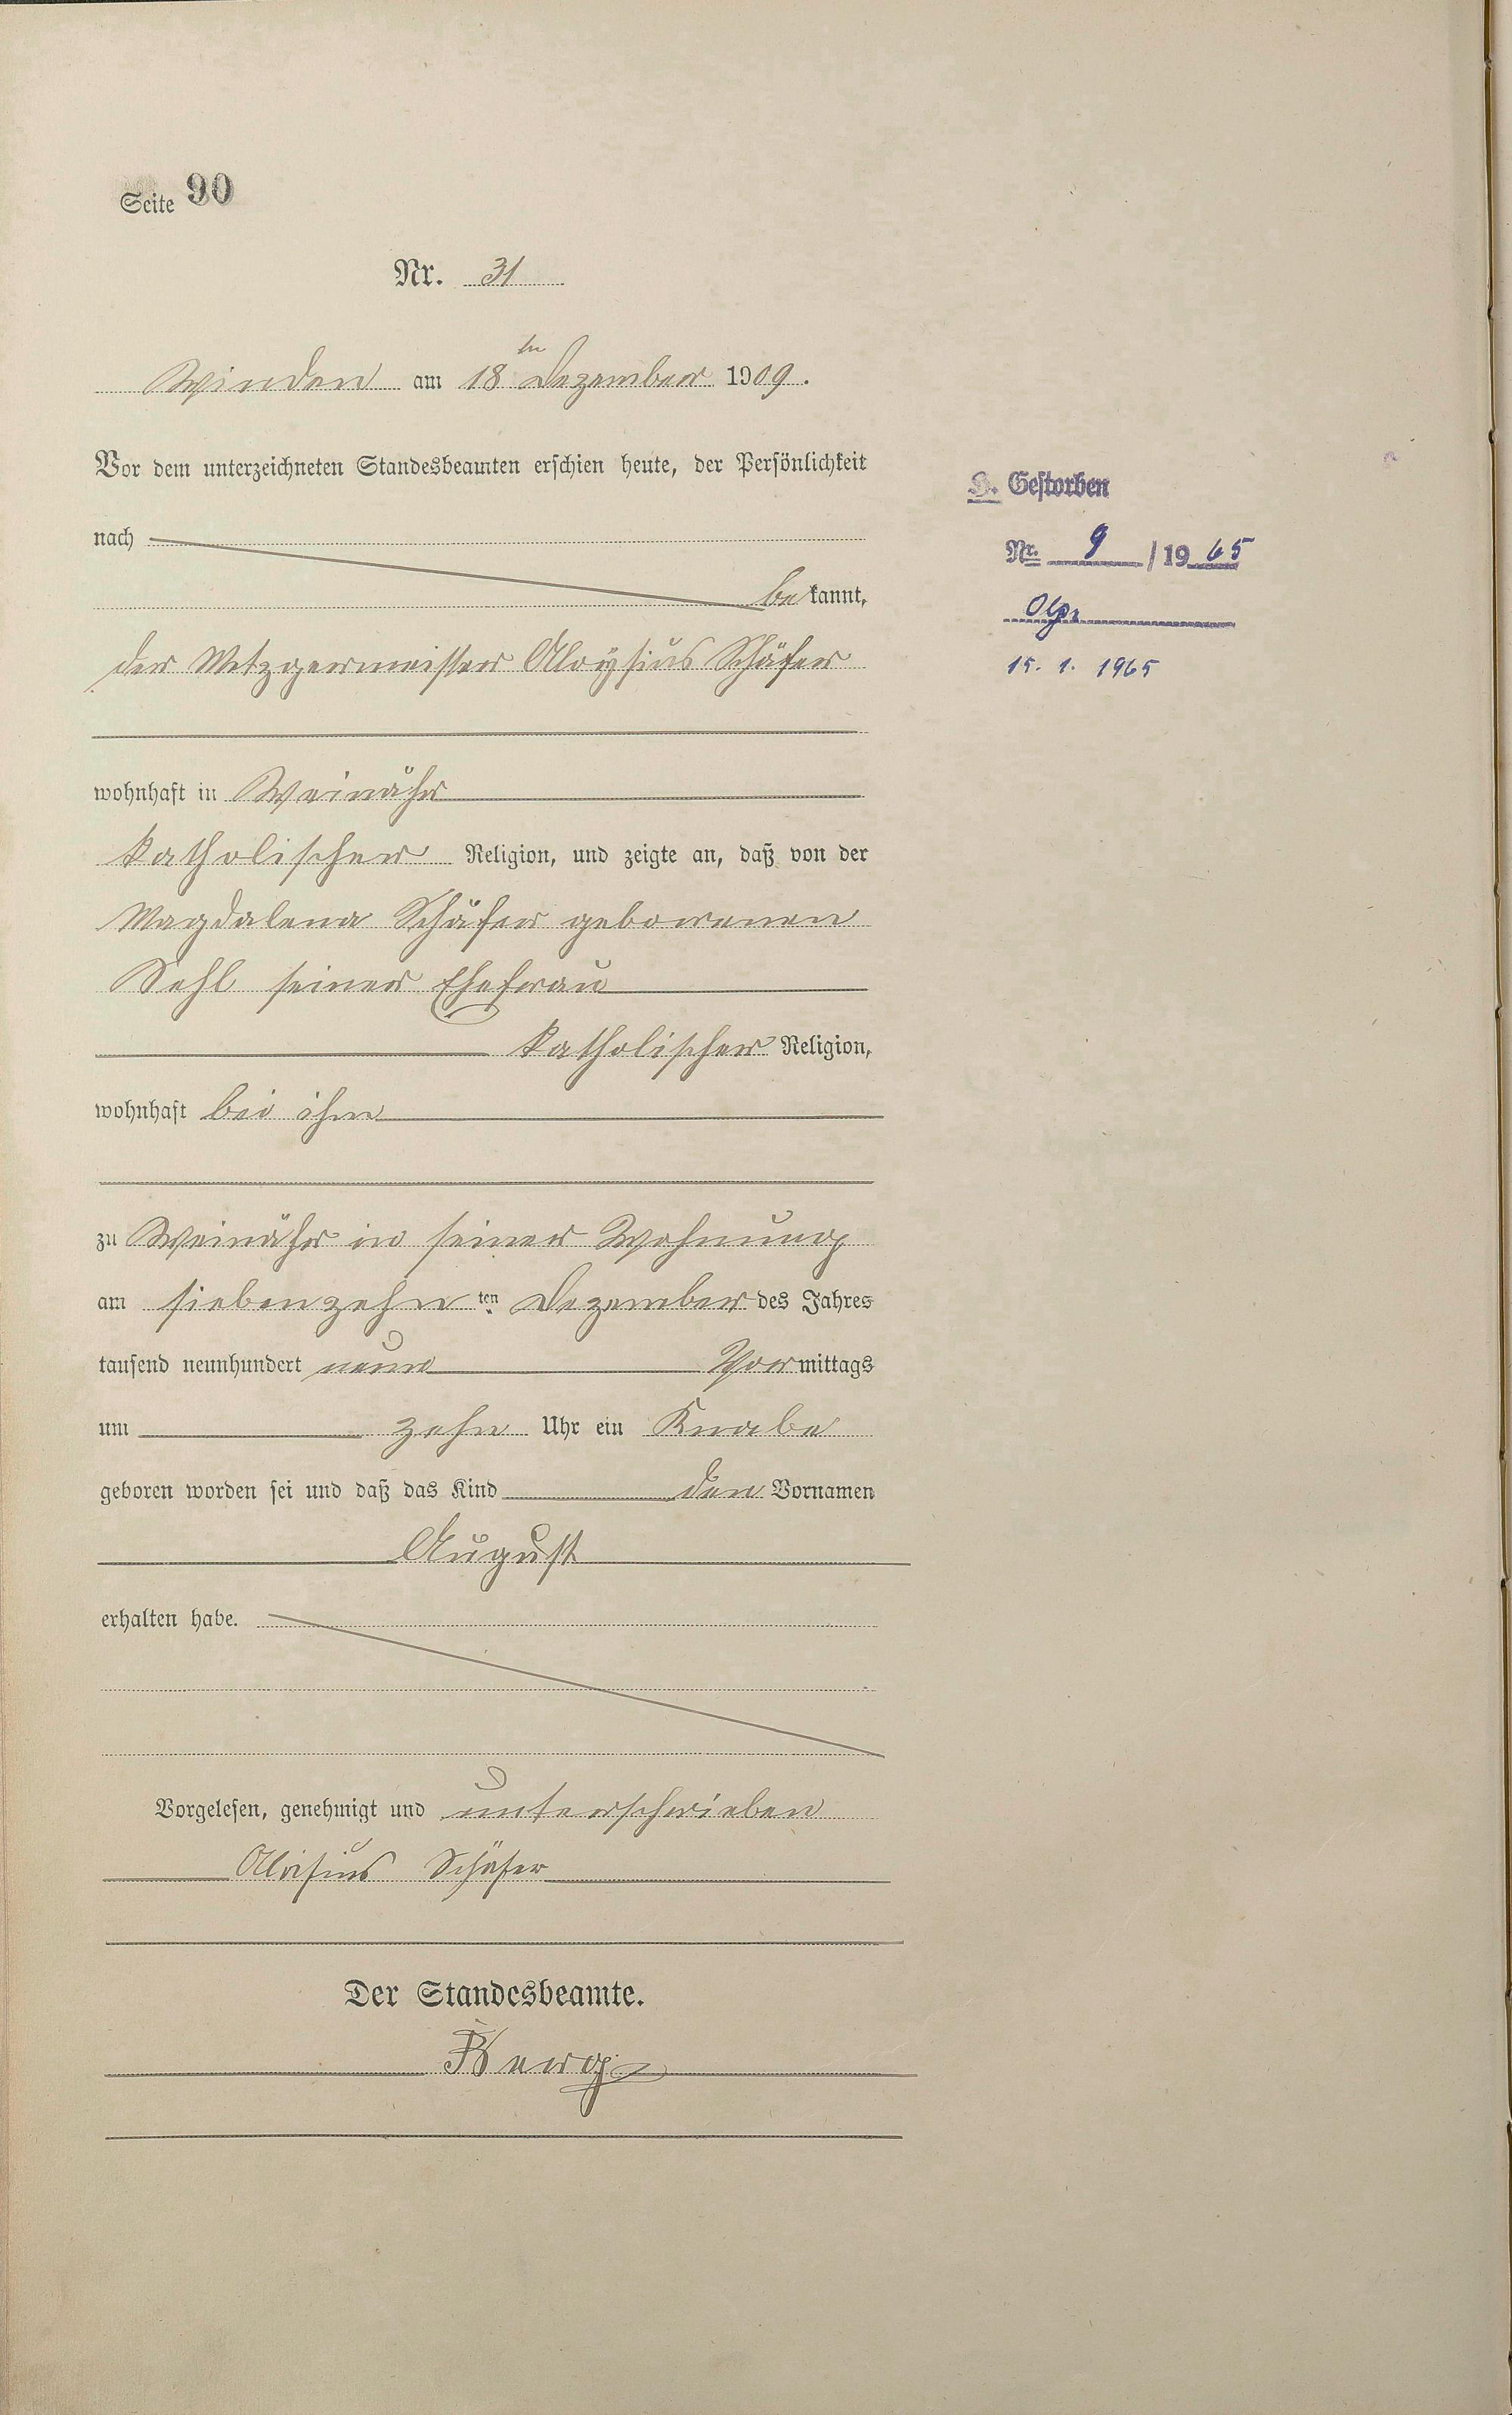 Seite 90
Nr. 31
Winden am 18ten Dezember 1909.
Vor dem unterzeichneten Standesbeamten erschien heute, der Persönlichkeit
nach
bekannt,
der Metzgermeister Aloÿsius Schäfer
wohnhaft in Weinähr
katholischer Religion, und zeigte an, daß von der
Magdalena Schäfer geborenen
Sehl seiner Ehefrau
katholischer Religion,
wohnhaft bei ihm
zu Weinähr in seiner Wohnung
am siebenzehnten Dezember des Jahres
tausend neunhundert neun Vormittags
um zehn Uhr ein Knabe
geboren worden sei und daß das Kind den Vornamen
August
erhalten habe.
Vorgelesen, genehmigt und unterschrieben
Aloisius Schäfer
Der Standesbeamte.
Gestorben
Nr. 9 / 1965
15. 1. 1965